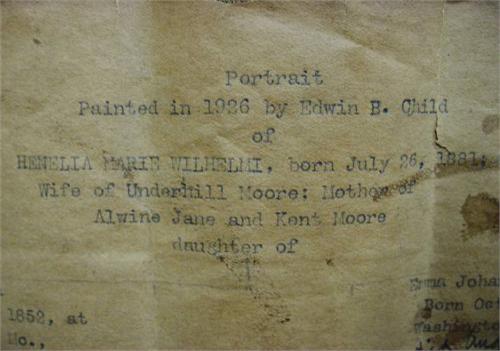 Portrait
Painted in 1926 by Edwin B. Child
of
HENELIA MARIE WILHELMI, born July 26, 1881;
Wife of Underhill Moore: Mother of
Alwine Jane and Kent Moore
daughter of
1852, at
Mo.,
Emma Joha
Born
Washingto